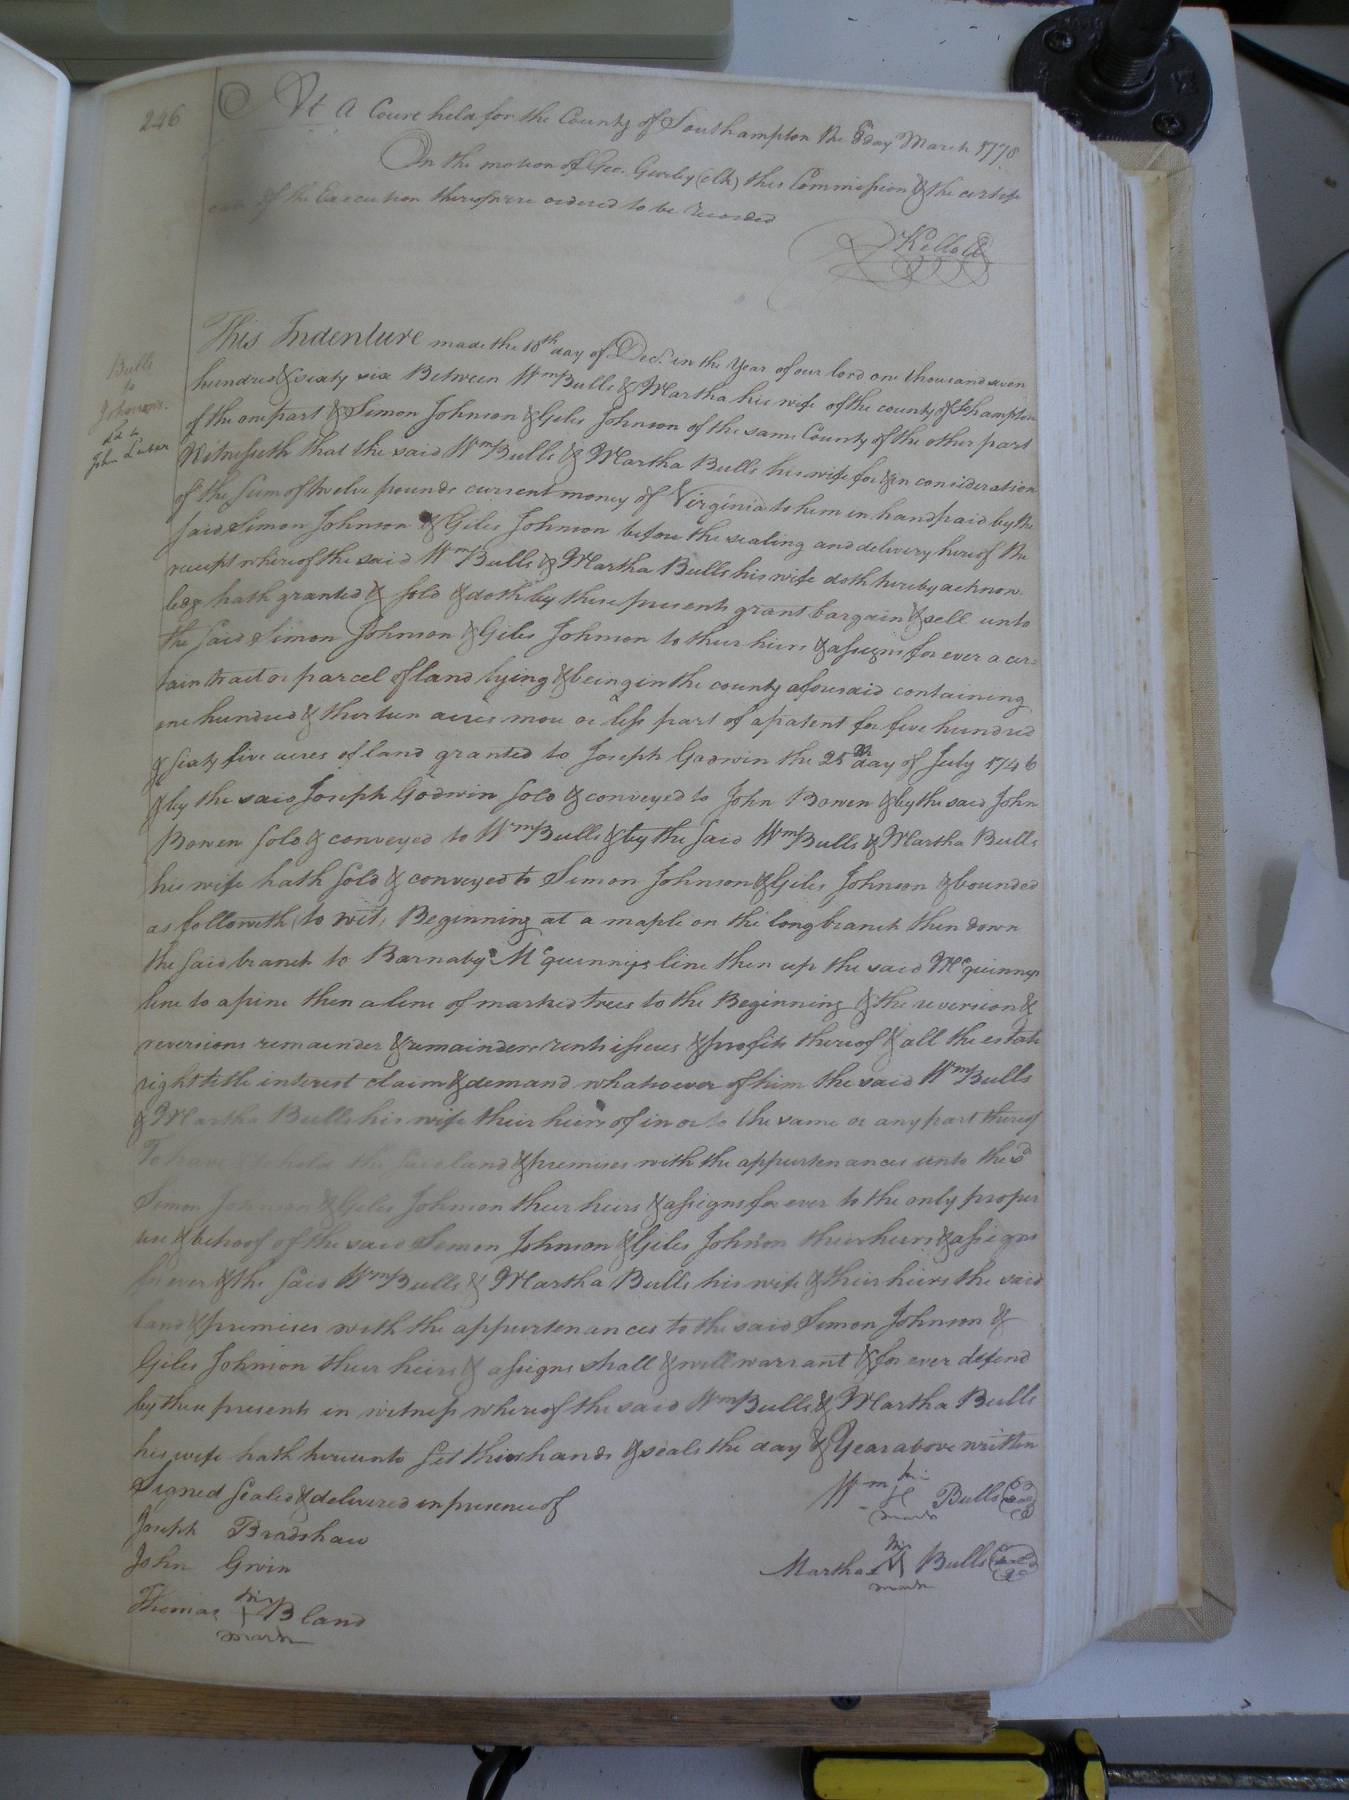 246
At A Court held for the County of Southampton the 8th day March 1778
On the motion of Geo. Gurley (clk) this Commission & the certifi
cate of the Execution thereof were ordered to be recorded
Bulls
to
Johnsons
This Indenture made the 18th day of Decr. in the Year of our lord one thousand seven
hundred & sixty six Between Wm Bulls & Martha his wife of the county of Sohampton
of the one part & Simon Johnson & Giles Johnson of the same County of the other part
Witnesseth that the said Wm Bulls & Martha Bulls his wife for & in consideration
of the sum of twelve pounds current money of Virginia to him in hand paid by the
said Simon Johnson & Giles Johnson before the sealing and delivery hereof the
receipt whereof the said Wm Bulls & Martha Bulls his wife doth hereby acknow
ledg hath granted & sold & doth by these presents grant bargain & sell unto
the said Simon Johnson & Giles Johnson to their hiers & assigns for ever a cer=
tain tract or parcel of land lying & being in the county aforesaid containing
one hundred & thirteen acres more or less part of a patent for five hundred
& sixty five acres of land granted to Joseph Godwin the 25th day of July 1746
& by the said Joseph Godwin sold & conveyed to John Bowen & by the said John
Bowen sold & conveyed to Wm Bulls & by the said Wm Bulls & Martha Bulls
his wife hath sold & conveyed to Simon Johnson & Giles Johnson & bounded
as followeth (to wit, Beginning at a maple on the long branch then down
the said branch to Barnaby McQuinnys line then up the said McQuinnys
line to a pine then a line of marked trees to the Beginning & the reversion &
reversions remainder & remainders rents issues & profits thereof & all the estate
right title interest claim & demand whatsoever of him the said Wm Bulls
& Martha Bulls his wife their heirs of in or to the same or any part thereof
To have & to hold the said land & premises with the appurtenances unto the sd
Simon Johnson & Giles Johnson their heirs & assigns for ever to the only proper
use & behoof of the said Simon Johnson & Giles Johnson their heirs & assigns
for ever & the said Wm Bulls & Martha Bulls his wife & their heirs the said
land & premises with the appurtenances to the said Simon Johnson &
Giles Johnson their heirs & assigns shall & will warrant & for ever defend
by these presents in witness whereof the said Wm Bulls & Martha Bulls
his wife hath hereunto set their hands & seals the day & Year above written
Signed sealed & delivered in presence of
Wm his mark Bulls
Joseph Bradshaw
John Gwin
Martha mark Bulls
Thomas his + mark Bland